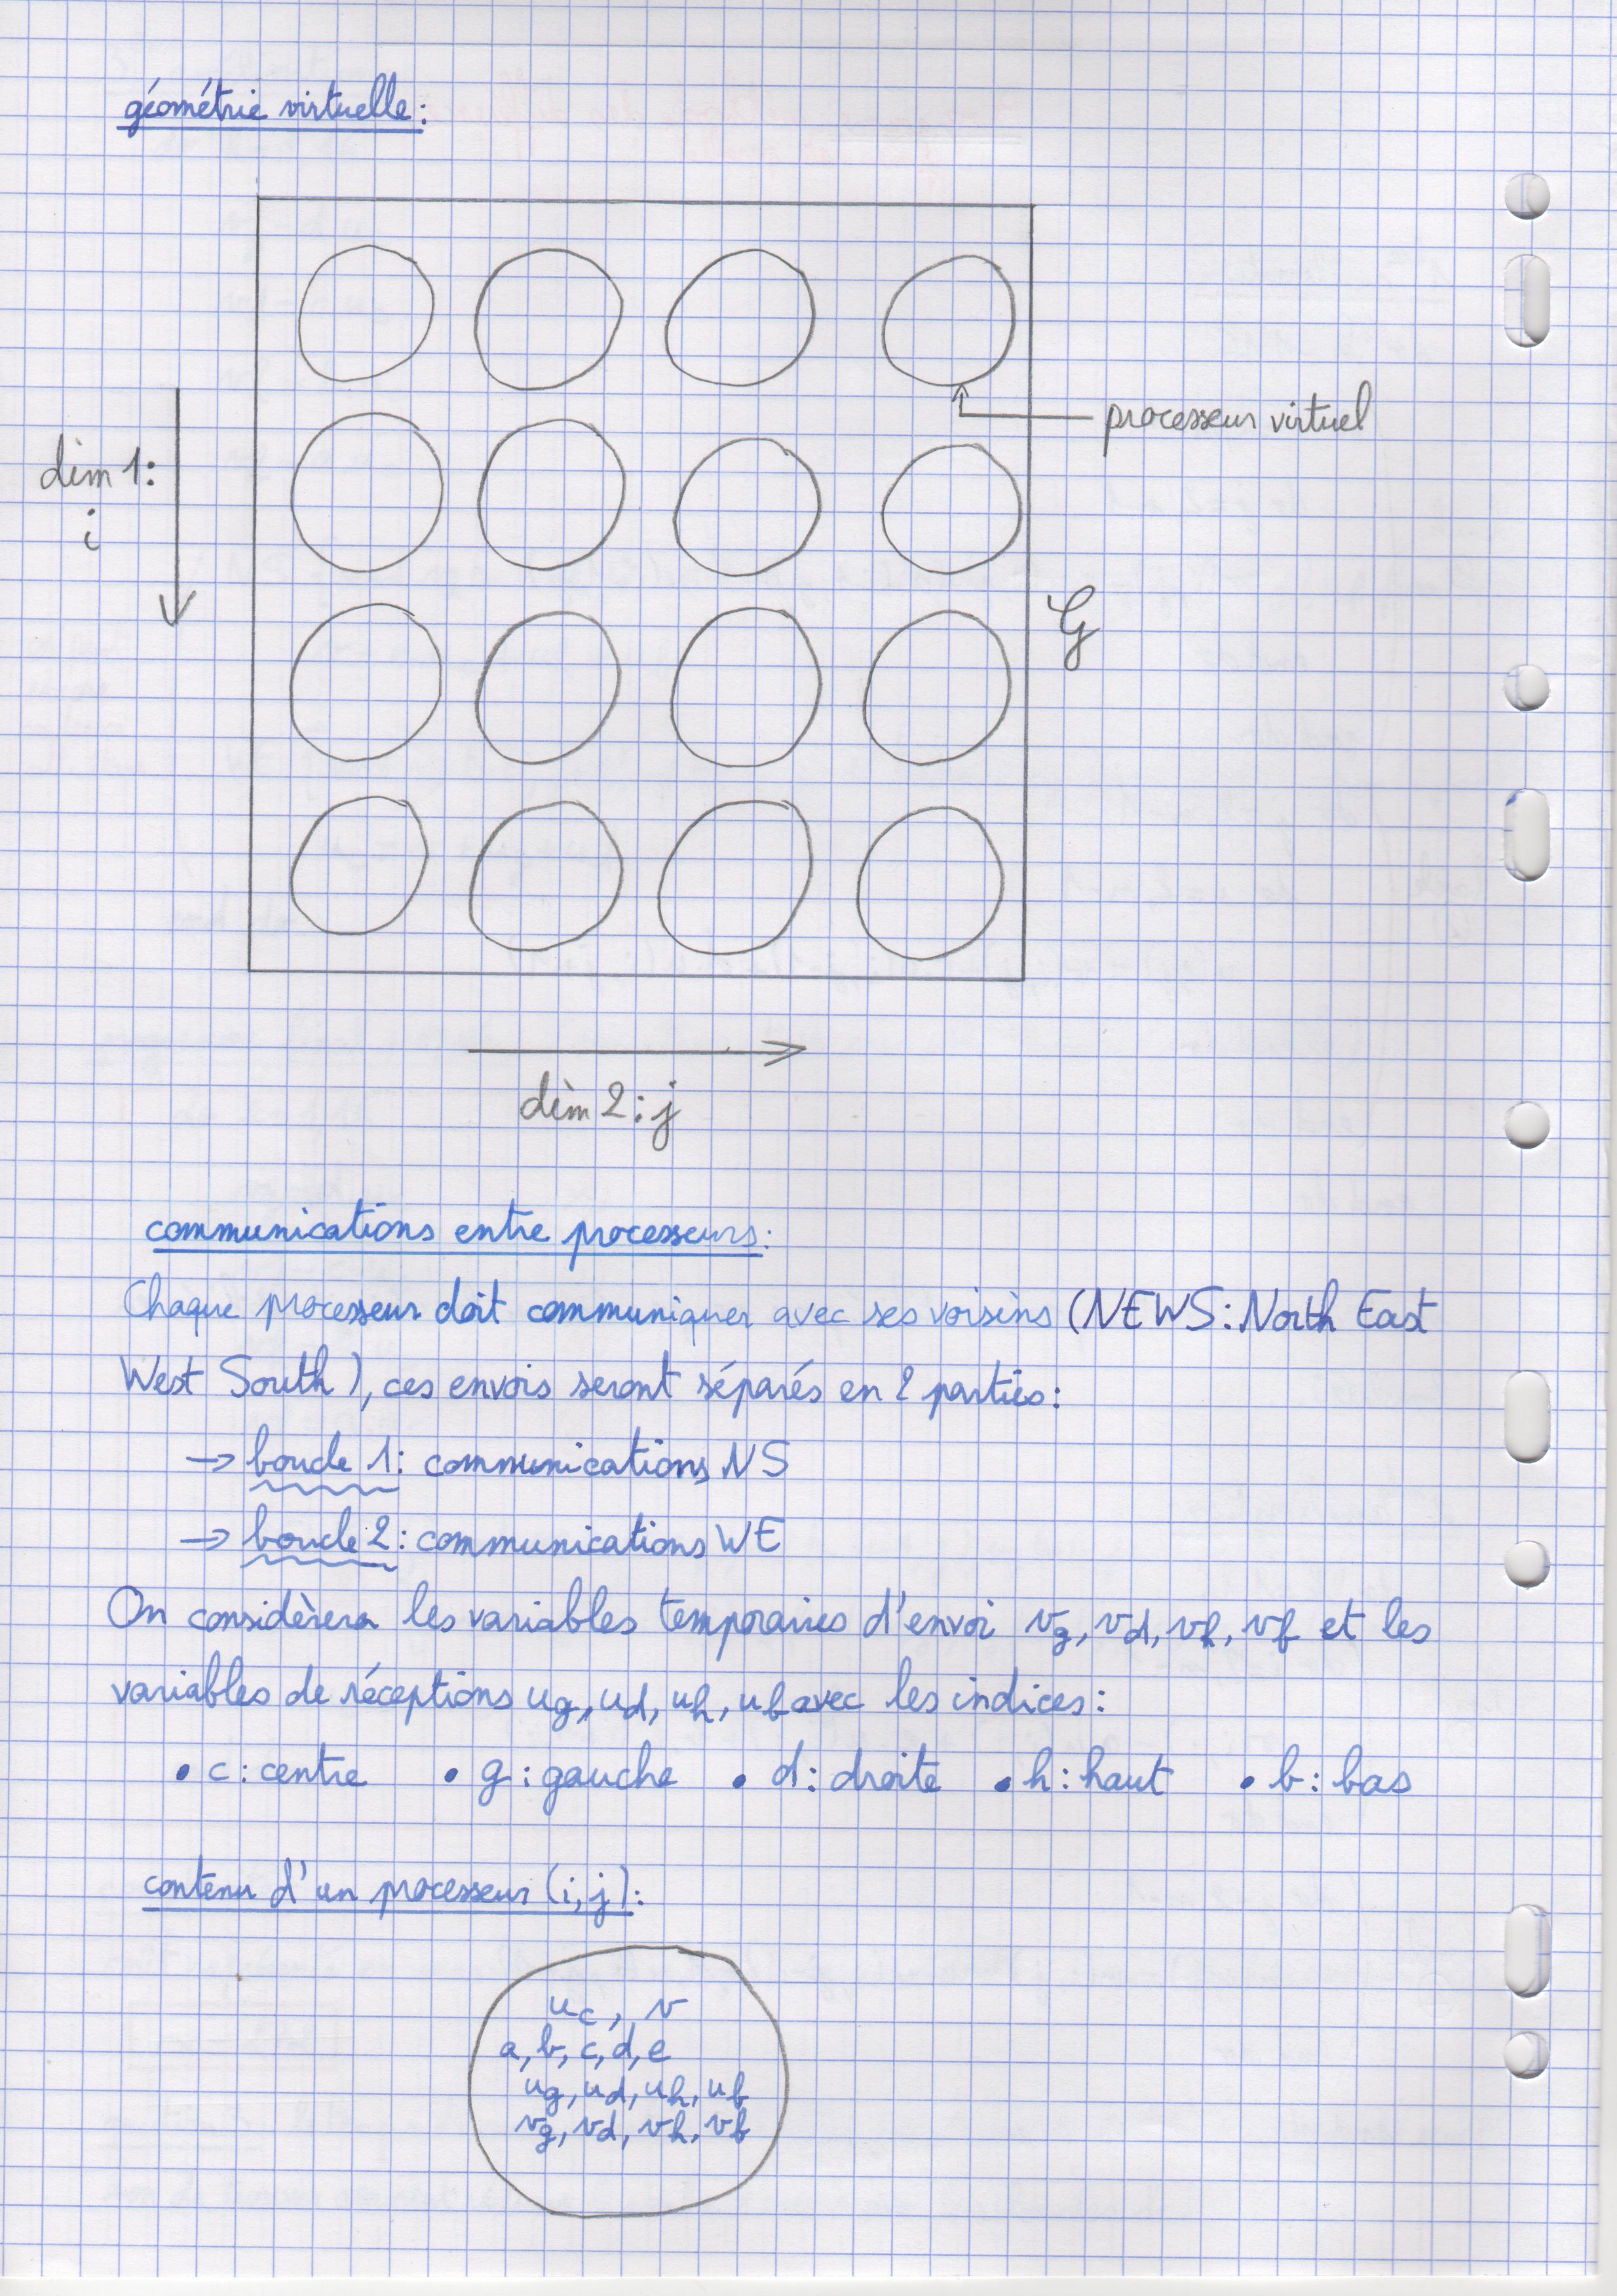 géométrie virtuelle:
processeur virtuel
dim 1:
i
G
dim 2: j
communications entre processeurs:
Chaque processeur doit communiquer avec ses voisins (NEWS: North East
West South), ces envois seront séparés en 2 parties:
→ boucle 1: communications NS
→ boucle 2: communications WE
On considèrera les variables temporaires d'envoi vg, vd, vh, vb et les
variables de réceptions ug, ud, uh, ub avec les indices:
• c: centre • g: gauche • d: droite • h: haut • b: bas
contenu d'un processeur (i,j):
uc, v
a, b, c, d, e
ug, ud, uh, ub
vg, vd, vh, vb